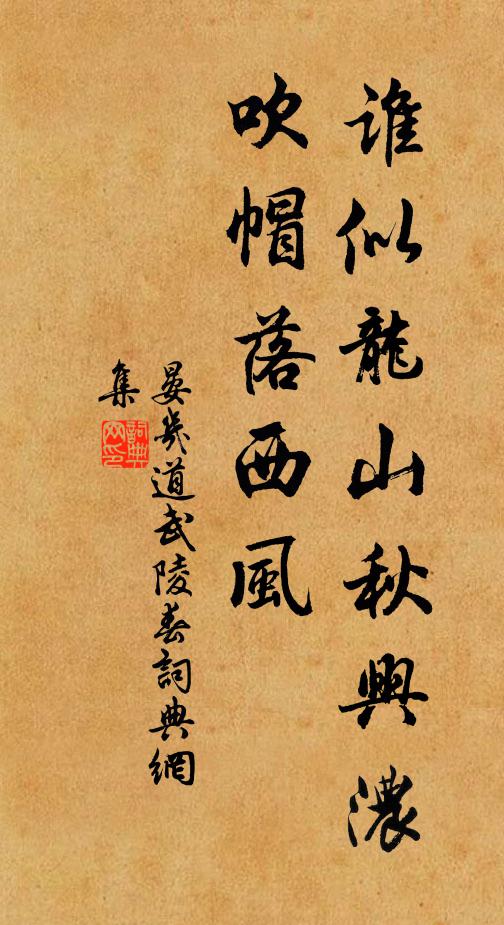 誰似龍山秋興濃
吹帽落西風
晏幾道武陵春詞典網
集
詞典網印